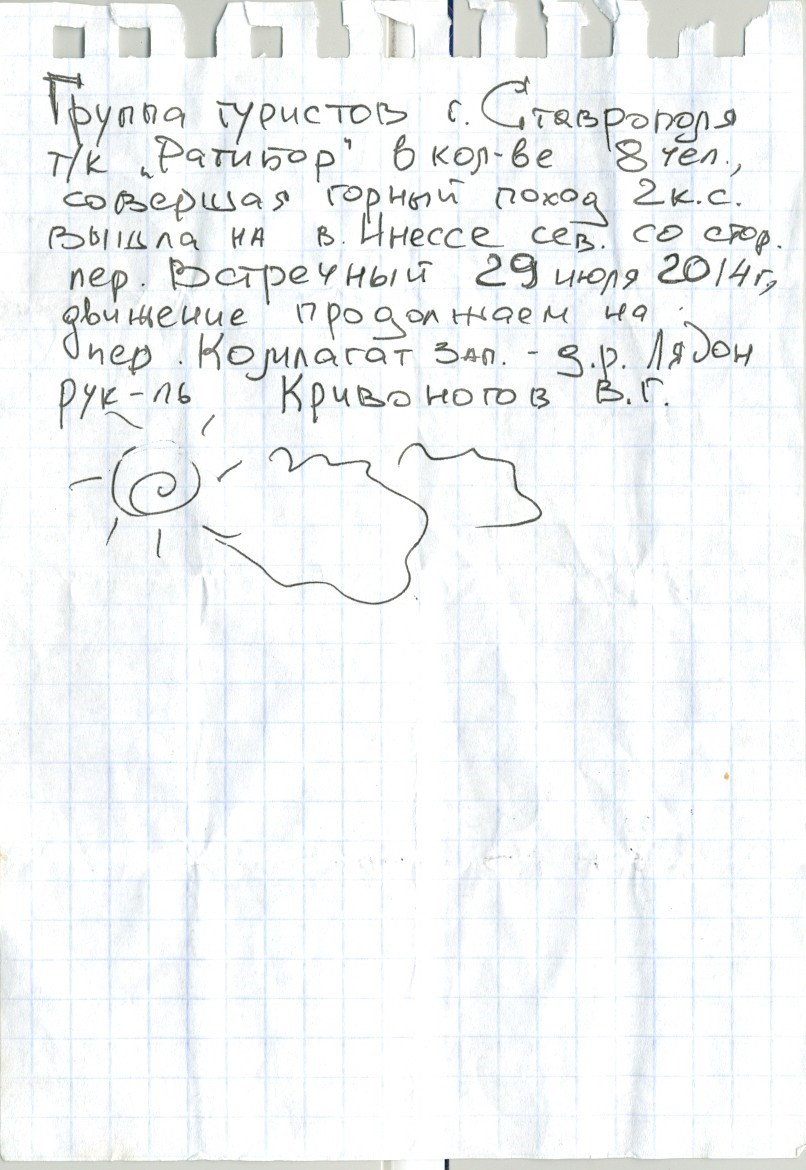 Группа туристов г. Ставрополя
т/к „Ратибор" в кол-ве 8 чел.,
совершая горный поход 2 к.с.
вышла на в. Инессе сев. со стор.
пер. Встречный 29 июля 2014 г,
движение продолжаем на
пер. Козмлагат зап. - д.р. Лядон
рук-ль Кривоногов В.Г.